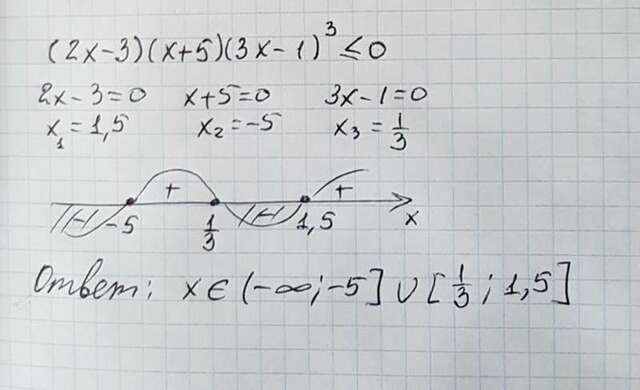 (2x-3)(x+5)(3x-1)³≤0
2x-3=0 x+5=0 3x-1=0
x₁=1,5 x₂=-5 x₃=1/3
- + - +
-5 1/3 1,5 x
Ответ: x∈(-∞;-5]∪[1/3;1,5]